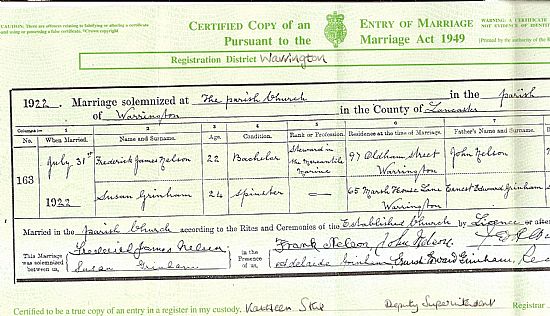 CAUTION: There are offences relating to falsifying or altering a certificate
and using or possessing a false certificate. *Crown copyright
CERTIFIED COPY of an ENTRY OF MARRIAGE
Pursuant to the Marriage Act 1949
WARNING: A CERTIFICATE
NOT EVIDENCE OF IDENTI
[Printed by authority of the R
Registration District Warrington
1922. Marriage solemnized at The parish Church in the parish
of Warrington in the County of Lancaster
Columns:— 1 2 3 4 5 6 7
No. When Married. Name and Surname. Age. Condition. Rank or Profession. Residence at the time of Marriage. Father's Name and Surname.
163
July 31st Frederick James Nelson 22 Bachelor Steward in the Mercantile Marine 97 Oldham Street Warrington John Nelson
1922 Susan Grinham 24 Spinster — 65 Marsh House Lane Warrington Ernest Edward Grinham
Married in the parish Church according to the Rites and Ceremonies of the Established Church by Licence or after
This Marriage was solemnized between us, Frederick James Nelson Susan Grinham in the Presence of us, Frank Nelson, John Nelson Adelaide Grinham Ernest Edward Grinham,
Certified to be a true copy of an entry in a register in my custody. Kathleen Deputy Superintendent
Registrar
Date